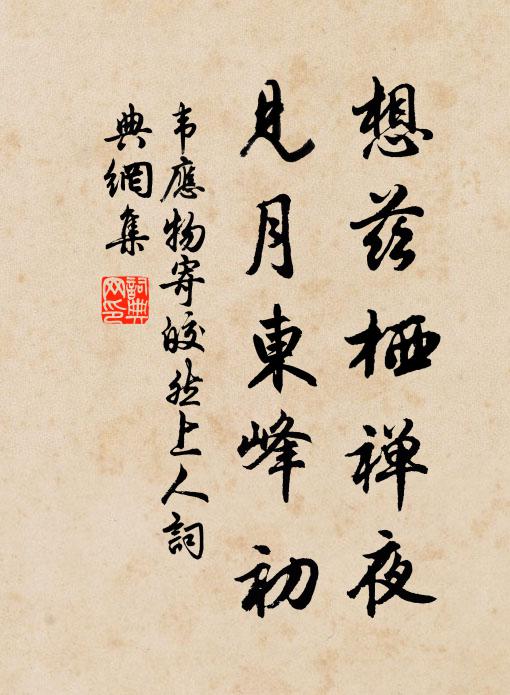 想兹栖禅夜
見月東峰初
韦應物寄皎然上人詞
典網集
詞典网印